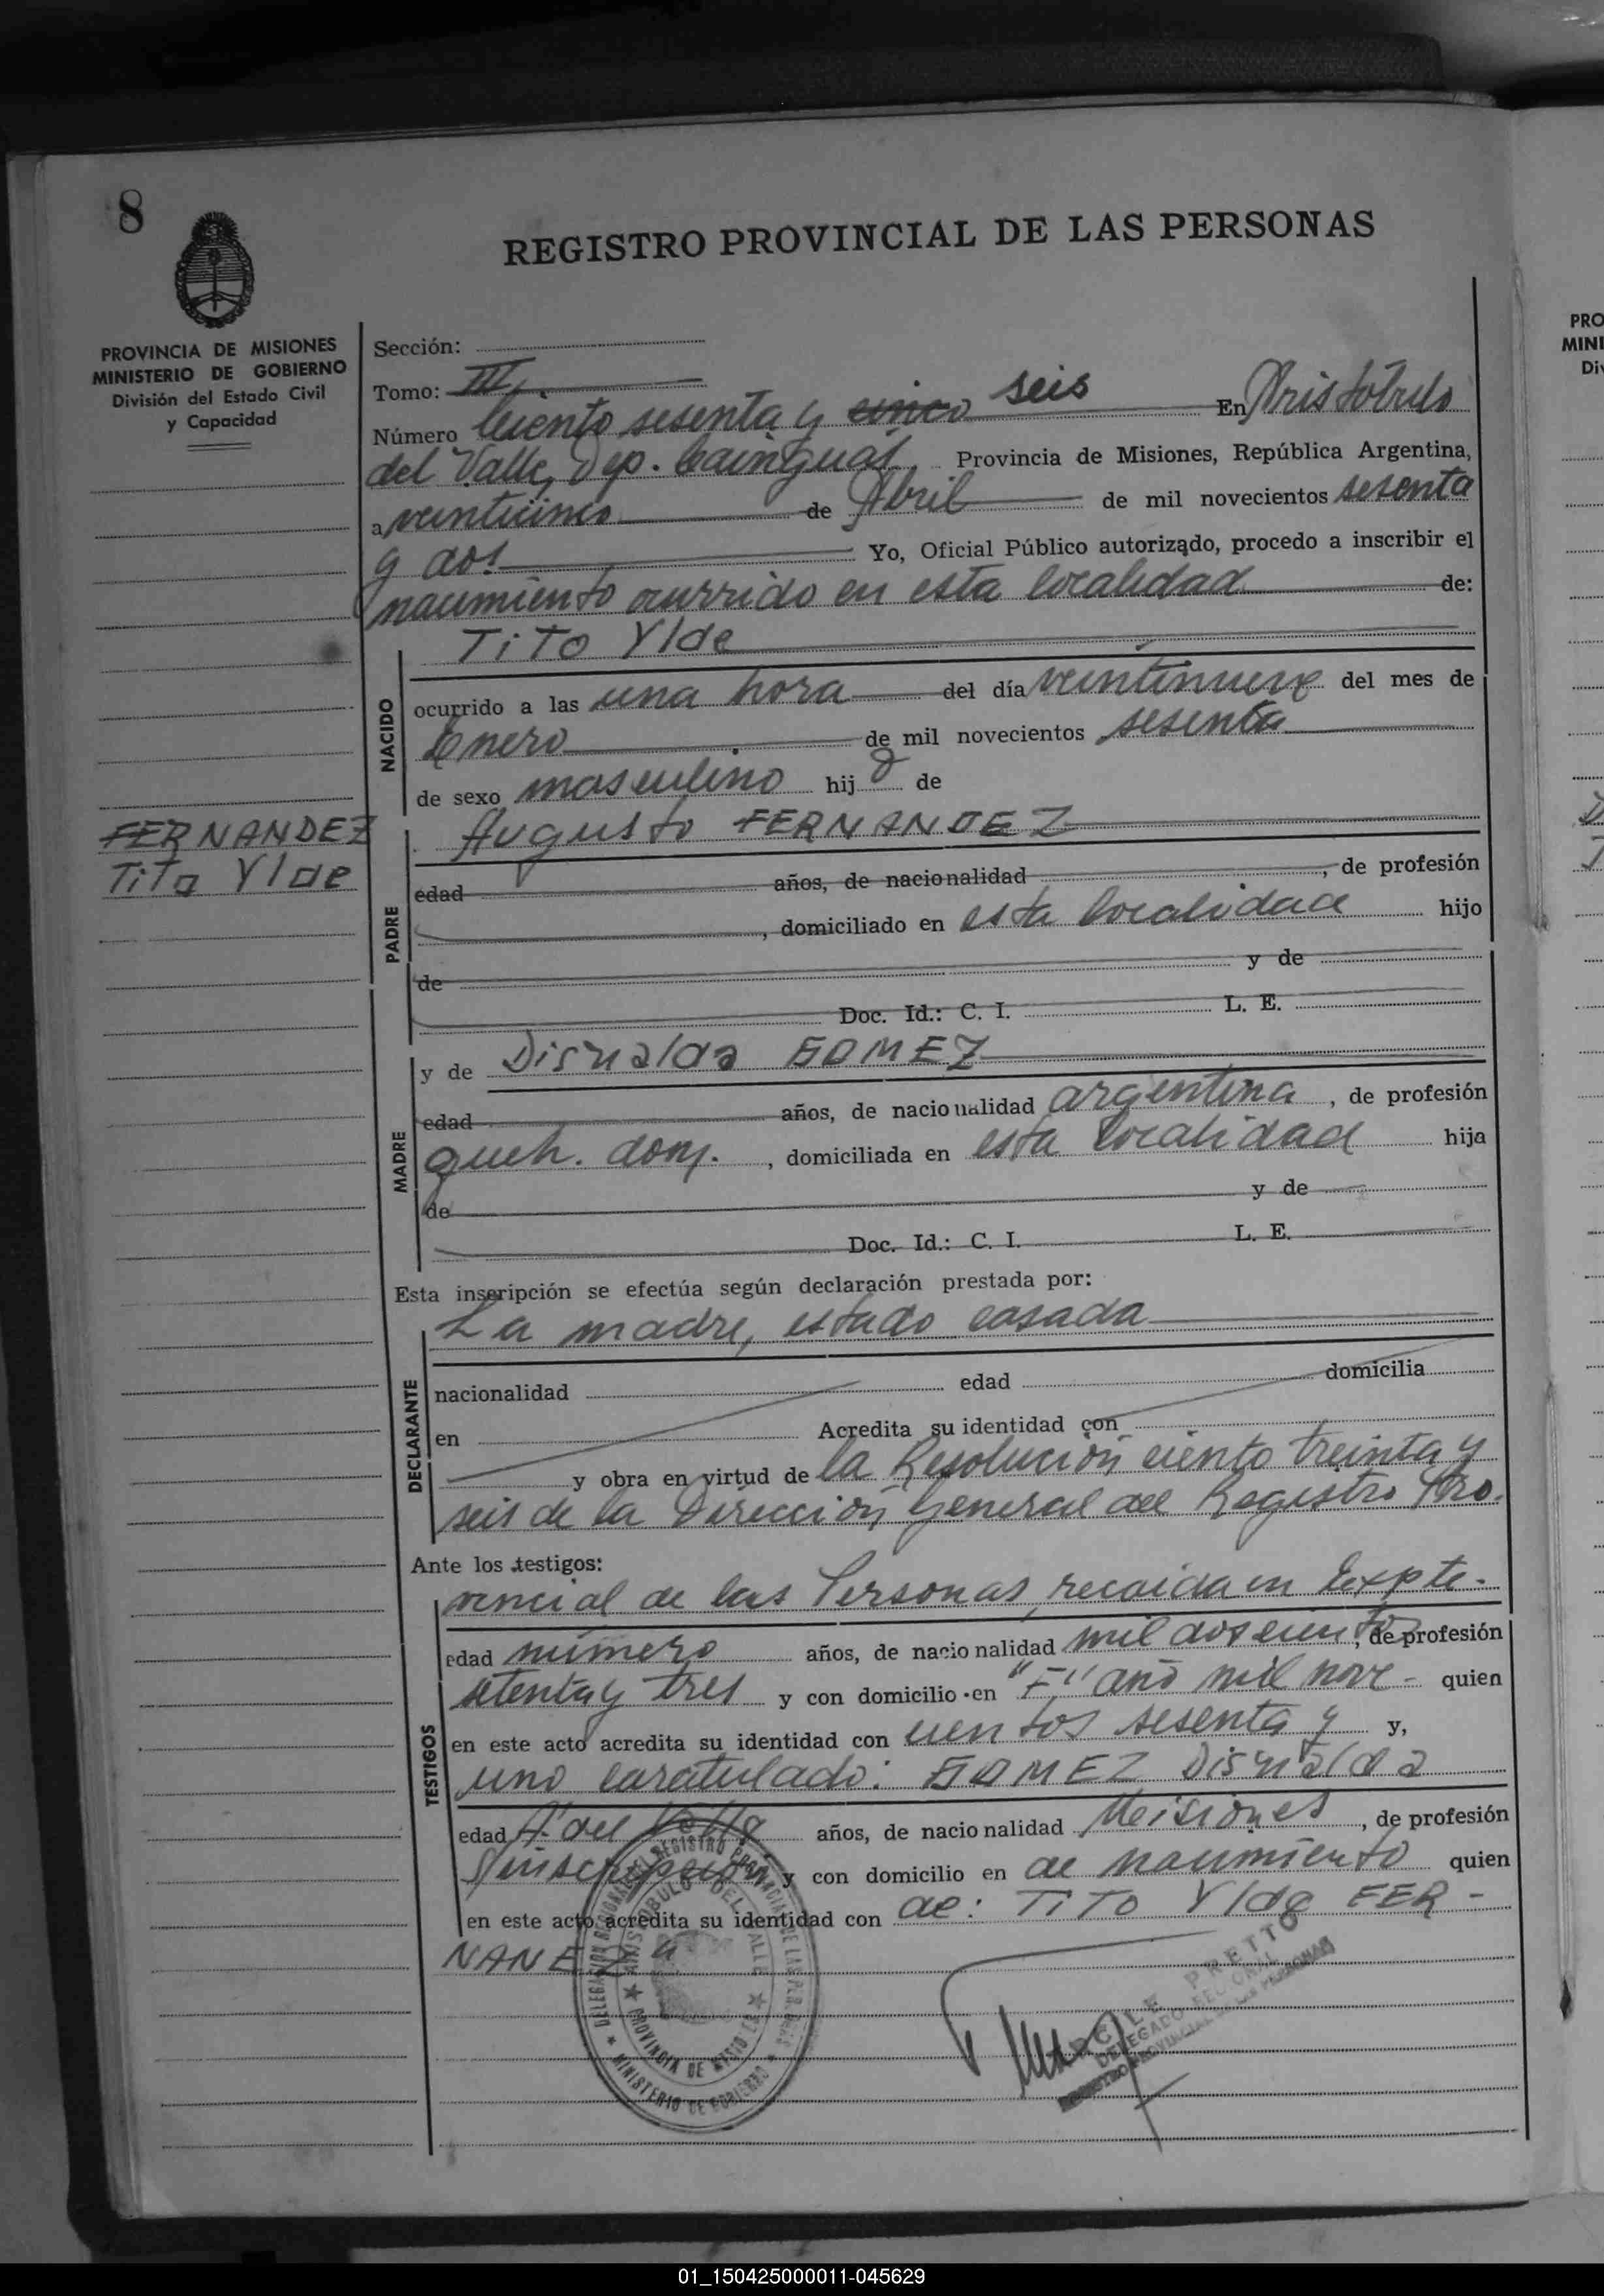 8
REGISTRO PROVINCIAL DE LAS PERSONAS
PROVINCIA DE MISIONES
MINISTERIO DE GOBIERNO
División del Estado Civil
y Capacidad
Sección:
Tomo: III
Número Ciento sesenta y cinco seis En Aristóbulo
del Valle, Dep. Cainguás Provincia de Misiones, República Argentina,
a veinticinco de Abril de mil novecientos sesenta
y dos Yo, Oficial Público autorizado, procedo a inscribir el
nacimiento ocurrido en esta localidad de:
TiTO Ylde
NACIDO
ocurrido a las una hora del día veintinueve del mes de
Enero de mil novecientos sesenta
de sexo masculino hijo de
FERNANDEZ
Tito Ylde
PADRE
Augusto FERNANDEZ
edad años, de nacionalidad , de profesión
, domiciliado en esta localidad hijo
de y de
Doc. Id.: C. I. L. E.
MADRE
y de Disnalda GOMEZ
edad años, de nacionalidad argentina , de profesión
queh. dom. , domiciliada en esta localidad hija
de y de
Doc. Id.: C. I. L. E.
Esta inscripción se efectúa según declaración prestada por:
DECLARANTE
La madre, estado casada
nacionalidad edad domicilia
en Acredita su identidad con
y obra en virtud de la Resolución ciento treinta y
seis de la Dirección General del Registro Pro.
Ante los testigos:
TESTIGOS
vincial de las Personas, recaída en Expte.
edad número años, de nacionalidad mil doscientos , de profesión
setenta y tres y con domicilio en "F" año mil nove- quien
en este acto acredita su identidad con cientos sesenta y y,
uno caratulado: GOMEZ Disnalda
edad A° del Valle años, de nacionalidad Misiones , de profesión
S/inscripción y con domicilio en de nacimiento quien
en este acto acredita su identidad con de: TiTO Ylde FER-
NANEZ
DELEGACION REGIONAL DEL REGISTRO PROVINCIAL DE LAS PERSONAS
ARISTOBULO DEL VALLE
PROVINCIA DE MISIONES
MINISTERIO DE GOBIERNO
PRETTO
DELEGADO REGIONAL
REGISTRO PROVINCIAL DE LAS PERSONAS
PRO
MINI
Div
01_150425000011-045629